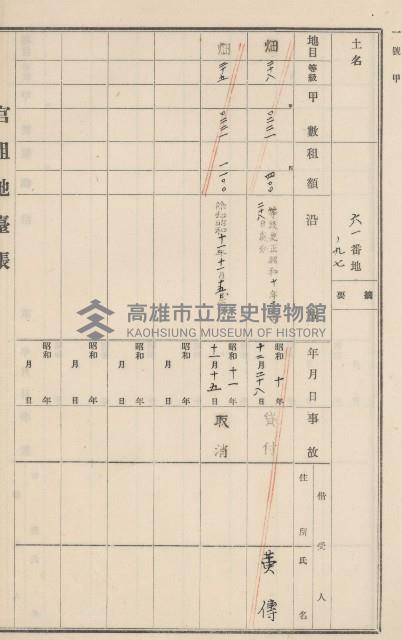 一號甲
土名
六一番地
ノ九七
摘要
地目
等級
甲數
租額
沿
年月日
事故
借受人
住所
氏名
畑
二十八
〇二三一
四〇〇
等級更正昭和十年
昭和十年
十二月二十八日
貸付
黃傳
畑
二十五
〇二三一
一一〇〇
除租昭和十一年十一月十五日
昭和十一年
十一月十五日
取消
昭和年
月日
昭和年
月日
昭和年
月日
昭和年
月日
官租地臺帳
高雄市立歷史博物館
KAOHSIUNG MUSEUM OF HISTORY